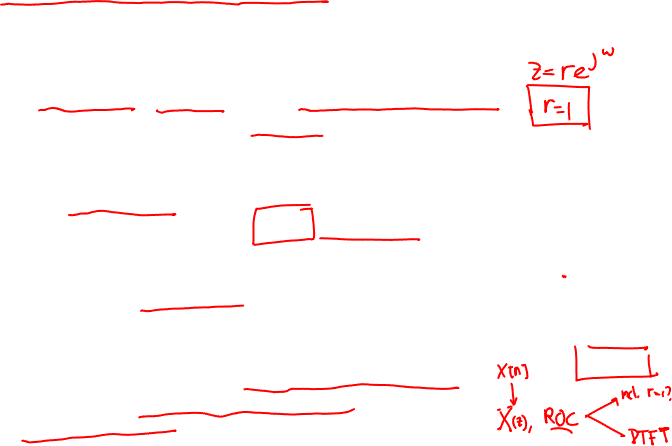 z=re^jω
r=1
x[n]
X(z), ROC
incl. r=1?
DTFT